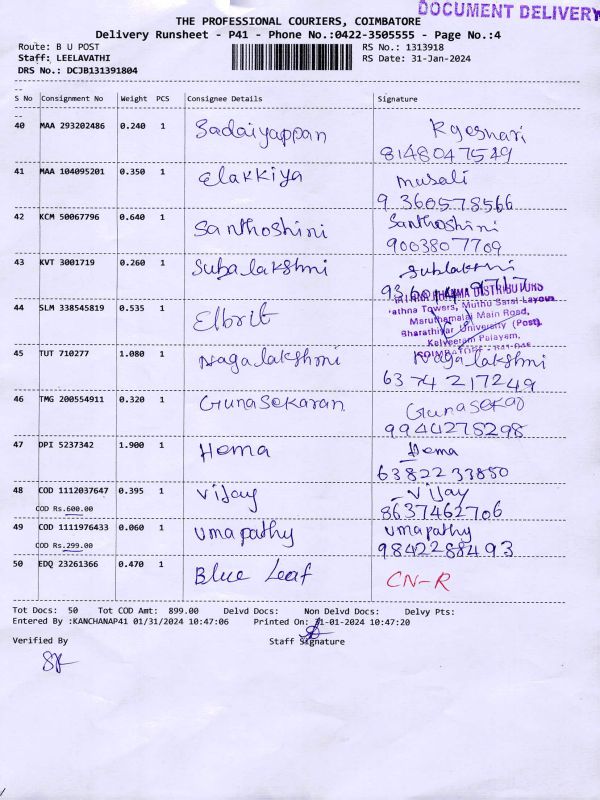 DOCUMENT DELIVERY
THE PROFESSIONAL COURIERS, COIMBATORE
Delivery Runsheet - P41 - Phone No.:0422-3505555 - Page No.:4
Route: B U POST RS No.: 1313918
Staff: LEELAVATHI RS Date: 31-Jan-2024
DRS No.: DCJB131391804
S No Consignment No Weight PCS Consignee Details Signature
40 MAA 293202486 0.240 1 Sadaiyappan
8148047549
41 MAA 104095201 0.350 1 Elakkiya Musali
9360578566
42 KCM 50067796 0.640 1 Santhoshini Santhoshini
9003807709
43 KVT 3001719 0.260 1 Subalakshmi
44 SLM 338545819 0.535 1 Elbrit
DISTRIBUTORS
Towers, Muthu Sarai Layout
Maruthamalai Main Road,
Bharathiyar University (Post)
Kalveeram Palayam,
45 TUT 710277 1.080 1 Nagalakshmi Nagalakshmi
6374217249
46 TMG 200554911 0.320 1 Gunasekaran
9944278298
47 DPI 5237342 1.900 1 Hema Hema
6382233850
48 COD 1112037647 0.395 1 Vijay Vijay
COD Rs.600.00 8637462706
49 COD 1111976433 0.060 1 Umapathy Umapathy
COD Rs.299.00 9842288493
50 EDQ 23261366 0.470 1 Blue Leaf CN-R
Tot Docs: 50 Tot COD Amt: 899.00 Delvd Docs: Non Delvd Docs: Delvy Pts:
Entered By :KANCHANAP41 01/31/2024 10:47:06 Printed On: 31-01-2024 10:47:20
Verified By Staff Signature